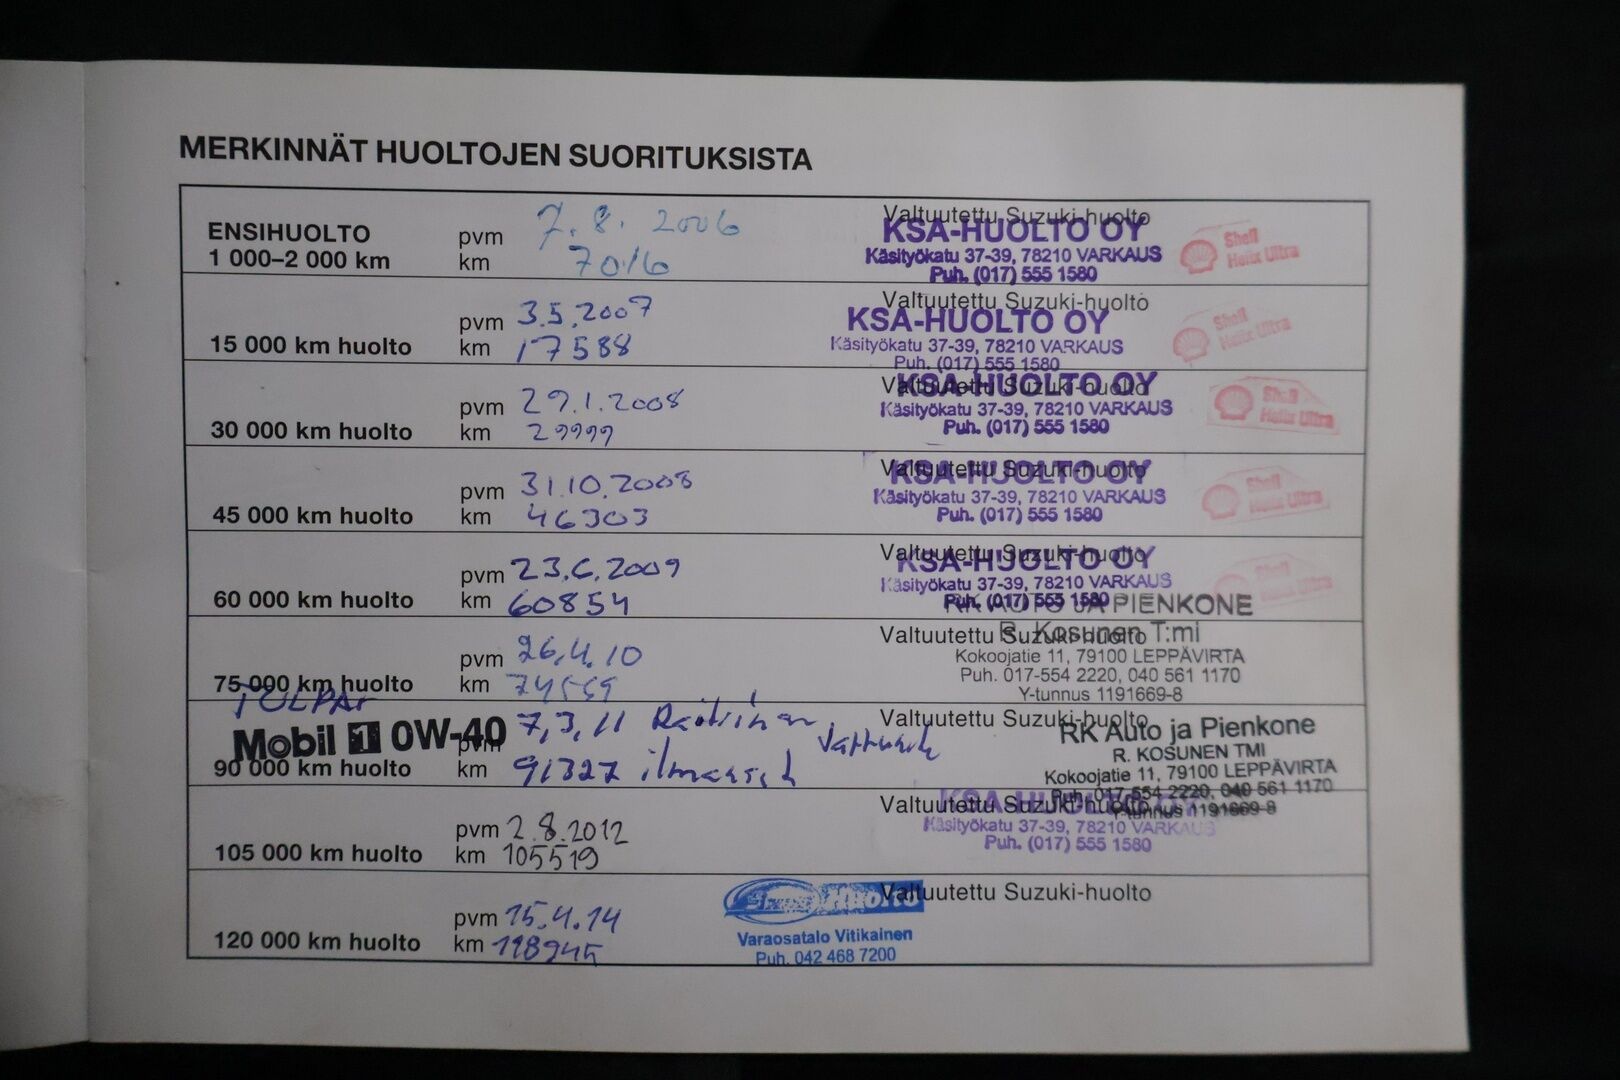 MERKINNÄT HUOLTOJEN SUORITUKSISTA
ENSIHUOLTO
1 000–2 000 km
pvm 7.8. 2006
km 7016
Valtuutettu Suzuki-huolto
KSA-HUOLTO OY
Käsityökatu 37-39, 78210 VARKAUS
Puh. (017) 555 1580
Shell
Helix Ultra
15 000 km huolto
pvm 3.5.2007
km 17588
Valtuutettu Suzuki-huolto
KSA-HUOLTO OY
Käsityökatu 37-39, 78210 VARKAUS
Puh. (017) 555 1580
Shell
Helix Ultra
30 000 km huolto
pvm 29.1.2008
km 29999
Valtuutettu Suzuki-huolto
KSA-HUOLTO OY
Käsityökatu 37-39, 78210 VARKAUS
Puh. (017) 555 1580
Shell
Helix Ultra
45 000 km huolto
pvm 31.10.2008
km 46303
Valtuutettu Suzuki-huolto
KSA-HUOLTO OY
Käsityökatu 37-39, 78210 VARKAUS
Puh. (017) 555 1580
Shell
Helix Ultra
60 000 km huolto
pvm 23.6.2009
km 60854
Valtuutettu Suzuki-huolto
KSA-HUOLTO OY
Käsityökatu 37-39, 78210 VARKAUS
Puh. (017) 555 1580
Shell
Helix Ultra
75 000 km huolto
pvm 26.4.10
km
Valtuutettu Suzuki-huolto
RK AUTO JA PIENKONE
R. Kosunen T:mi
Kokoojatie 11, 79100 LEPPÄVIRTA
Puh. 017-554 2220, 040 561 1170
Y-tunnus 1191669-8
Mobil 1 0W-40
90 000 km huolto
pvm 7.3.11
km 91327
Valtuutettu Suzuki-huolto
RK Auto ja Pienkone
R. KOSUNEN TMI
Kokoojatie 11, 79100 LEPPÄVIRTA
Puh. 017-554 2220, 040 561 1170
Y-tunnus 1191669-8
105 000 km huolto
pvm 2.8.2012
km 105519
Valtuutettu Suzuki-huolto
KSA-HUOLTO OY
Käsityökatu 37-39, 78210 VARKAUS
Puh. (017) 555 1580
120 000 km huolto
pvm 15.4.14
km 118945
Valtuutettu Suzuki-huolto
Huolto
Varaosatalo Vitikainen
Puh. 042 468 7200